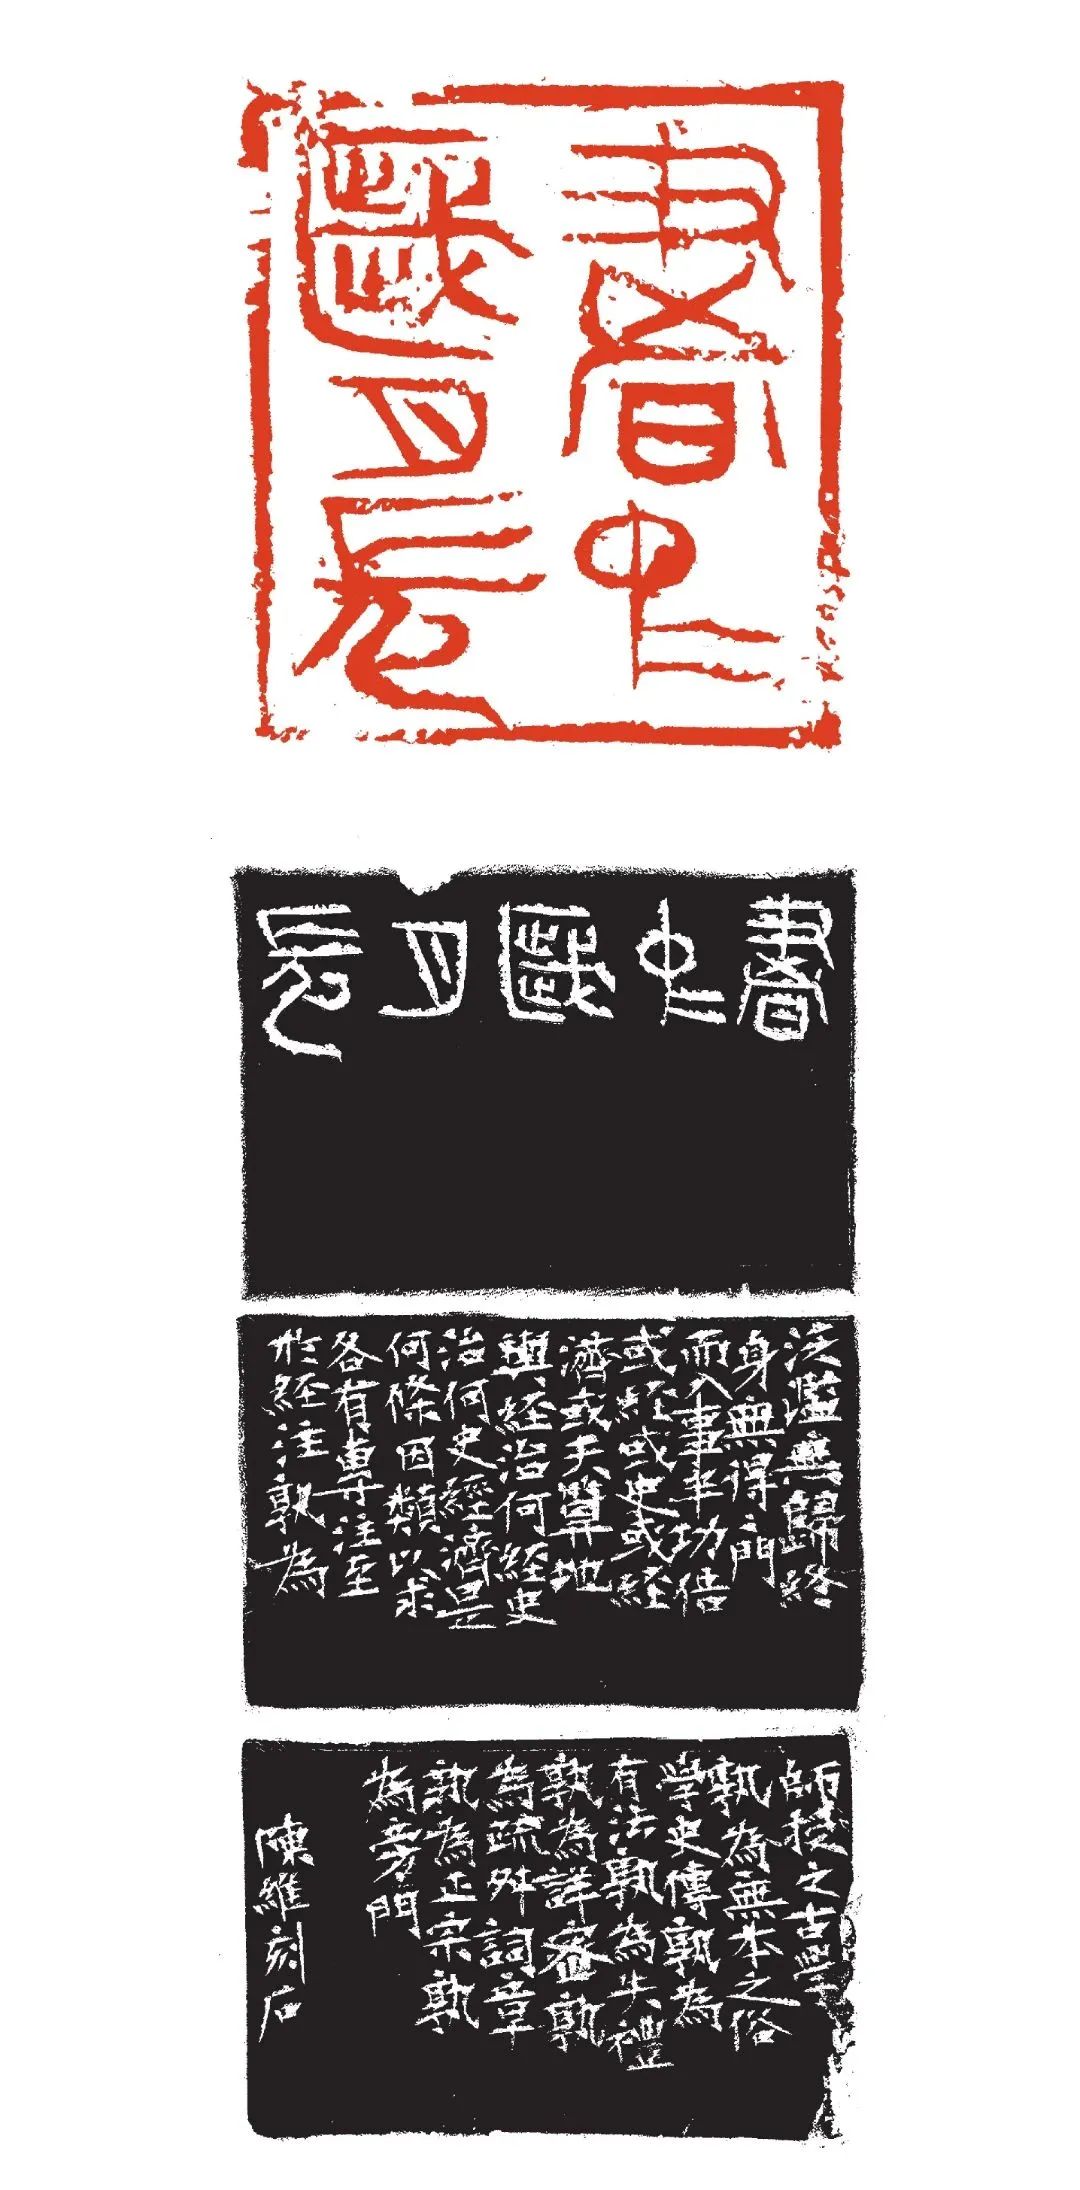 書中
歲月長
書中歲月長
泛濫無歸終
身無得〻門
而入事半功倍
或経或史或経
濟或天算地
輿経治何経史
治何史經濟是
何條因類以求
各有專注至
於経注孰為
師授之古學
孰為無本之俗
学史傳孰為
有法孰為失禮
孰為詳密孰
為疏舛詞章
孰為正宗孰
為旁門
陳維刻石